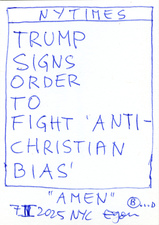 NYTIMES
TRUMP
SIGNS
ORDER
TO
FIGHT 'ANTI-
CHRISTIAN
BIAS'
"AMEN"
7 II 2025 NYC